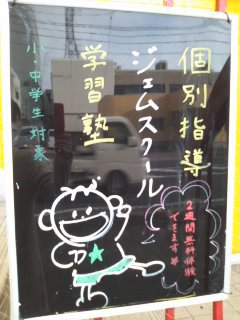 個別指導
ジェムスクール
学習塾
小・中学生対象
2週間無料体験
できます